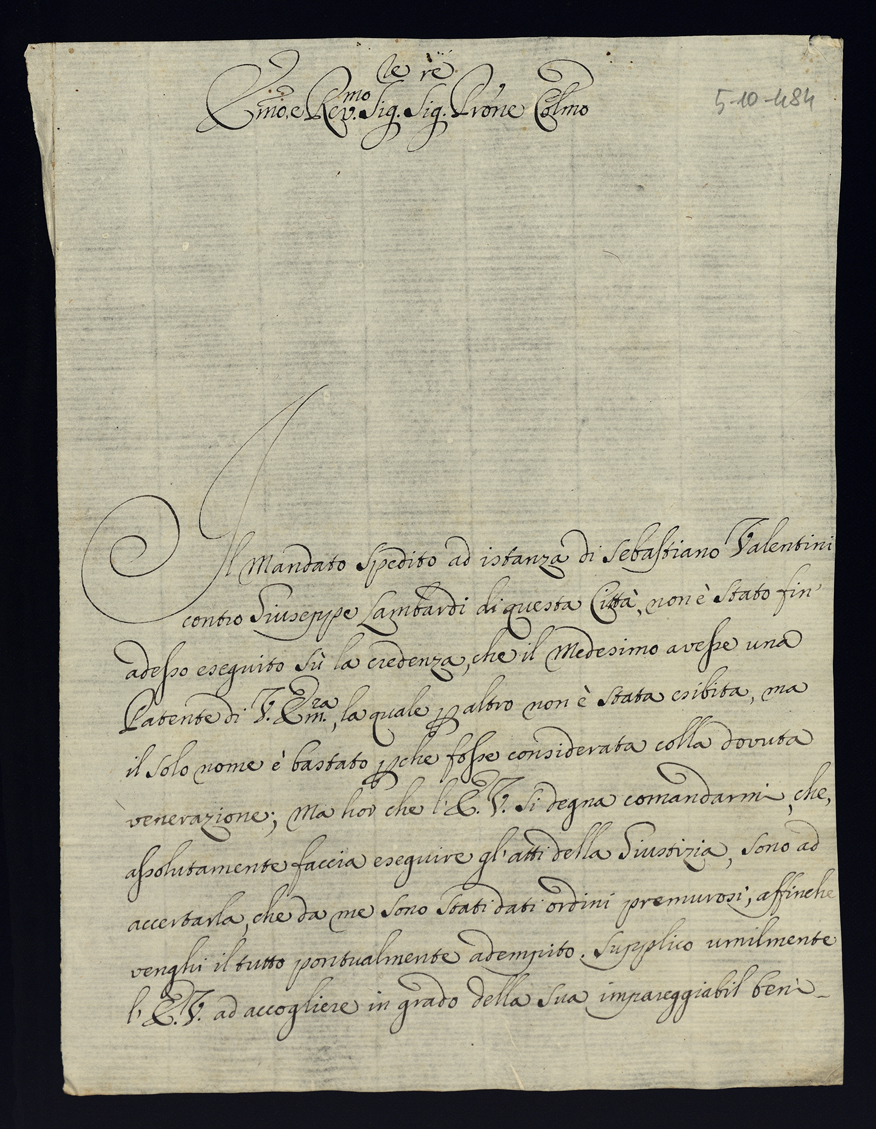 Emo. e Rev.mo Sig.re Sig.re Prone Colmo
5-10-484
Il Mandato spedito ad istanza di Sebastiano Valentini
contro Giuseppe Lambardi di questa Città, non è stato fin'
adesso eseguito sù la credenza, che il Medesimo avesse una
Patente di V. Em.za, la quale p altro non è stata esibita, ma
il solo nome è bastato pche fosse considerata colla dovuta
venerazione; Ma hor che l'E. V. si degna comandarmi, che,
assolutamente faccia eseguire gl'atti della Giustizia, sono ad
accertarla, che da me sono stati dati ordini premurosi, affinche
venghi il tutto pontualmente adempito. Supplico umilmente
l'E. V. ad accogliere in grado della sua impareggiabil beni-